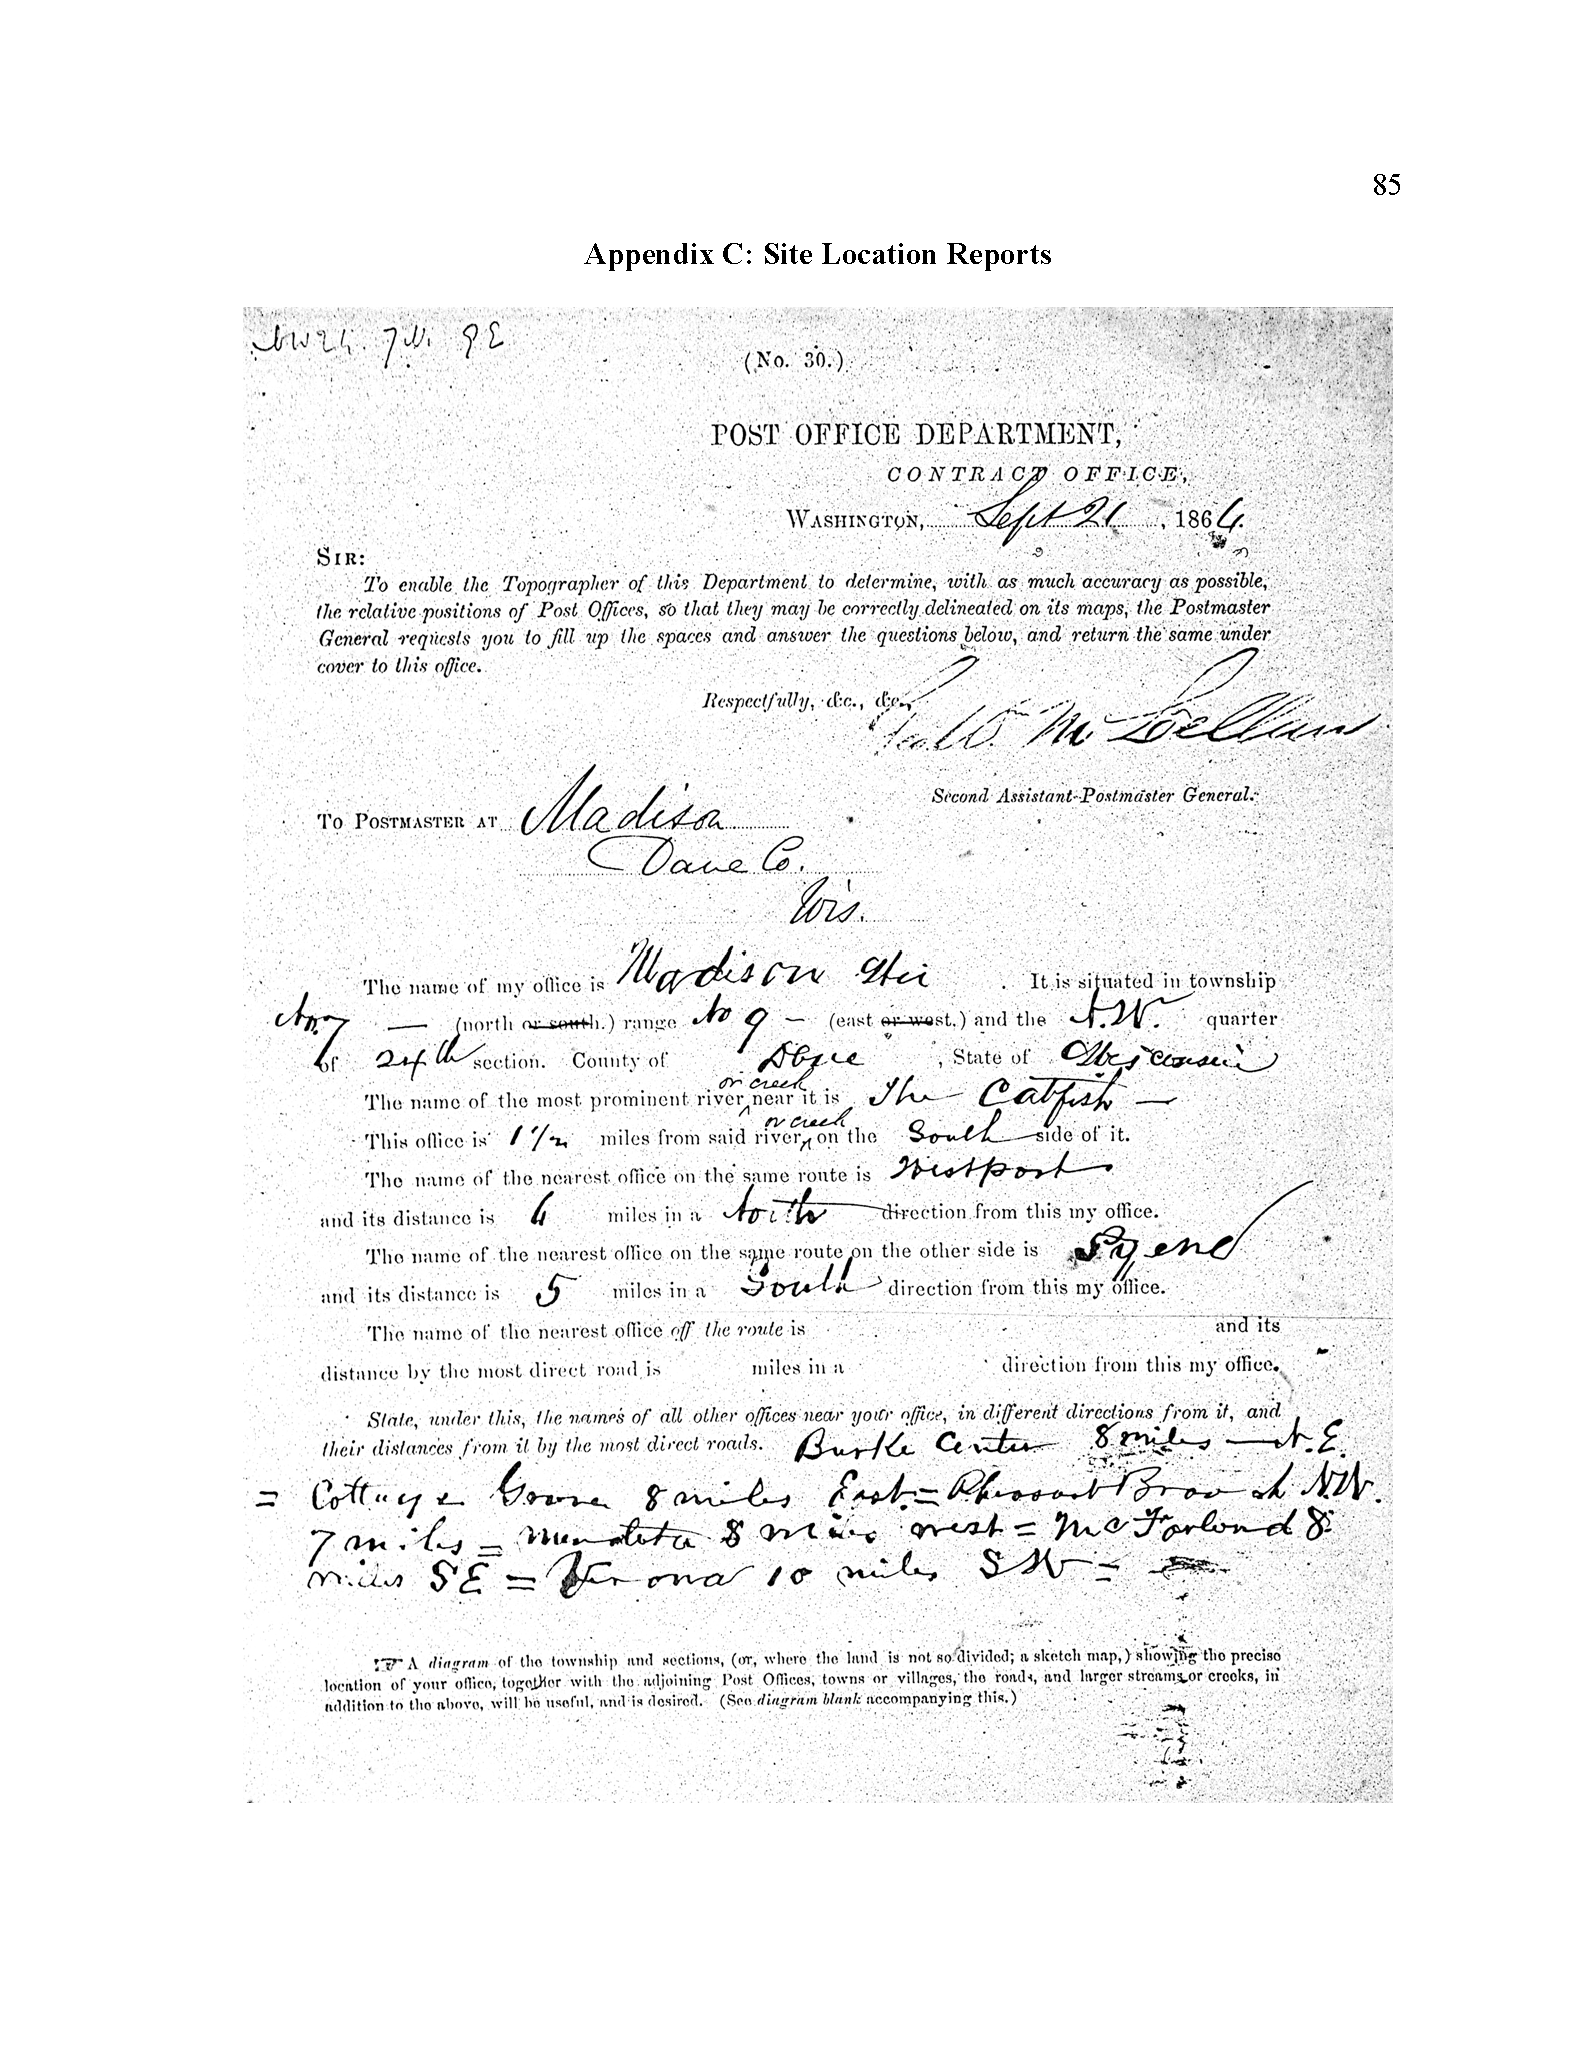 85
Appendix C: Site Location Reports
NW 24. 7 N. 9 E
(No. 30.)
POST OFFICE DEPARTMENT,
CONTRACT OFFICE,
WASHINGTON, Sept 21, 1864.
SIR:
To enable the Topographer of this Department to determine, with as much accuracy as possible,
the relative positions of Post Offices, so that they may be correctly delineated on its maps, the Postmaster
General requests you to fill up the spaces and answer the questions below, and return the same under
cover to this office.
Respectfully, &c., &c.,
Geo W. McLellan
Second Assistant Postmaster General.
TO POSTMASTER AT Madison
Dane Co.
Wis.
The name of my office is Madison Wis. It is situated in township
No. 7 — (north or south.) range No 9 — (east or west.) and the N.W. quarter
of 24th section. County of Dane, State of Wisconsin
or creek
The name of the most prominent river ^ near it is The Catfish —
or creek
This office is 1 1/2 miles from said river, ^ on the South side of it.
The name of the nearest office on the same route is Westport
and its distance is 6 miles in a North direction from this my office.
The name of the nearest office on the same route on the other side is Syene
and its distance is 5 miles in a South direction from this my office.
The name of the nearest office off the route is and its
distance by the most direct road is miles in a direction from this my office.
State, under this, the names of all other offices near your office, in different directions from it, and
their distances from it by the most direct roads. Burke Center 8 miles — N.E.
= Cottage Grove 8 miles East = Pheasant Branch N.W.
7 miles = Mendota 8 miles west = McFarland 8
miles SE = Verona 10 miles SW =
☞ A diagram of the township and sections, (or, where the land is not so divided; a sketch map,) showing the precise
location of your office, together with the adjoining Post Offices, towns or villages, the roads, and larger streams or creeks, in
addition to the above, will be useful, and is desired. (See diagram blank accompanying this.)